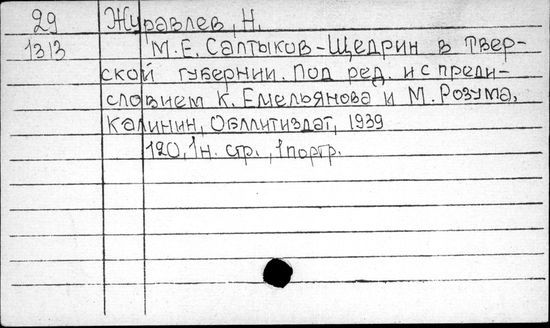 29 Журавлев, Н.
1313 М.Е. Салтыков-Щедрин в Твер-
ской губернии. Под ред. и с преди-
словием К. Емельянова и М. Розума.
Калинин, Облитиздат, 1939
120, 1н. стр., 1 портр.